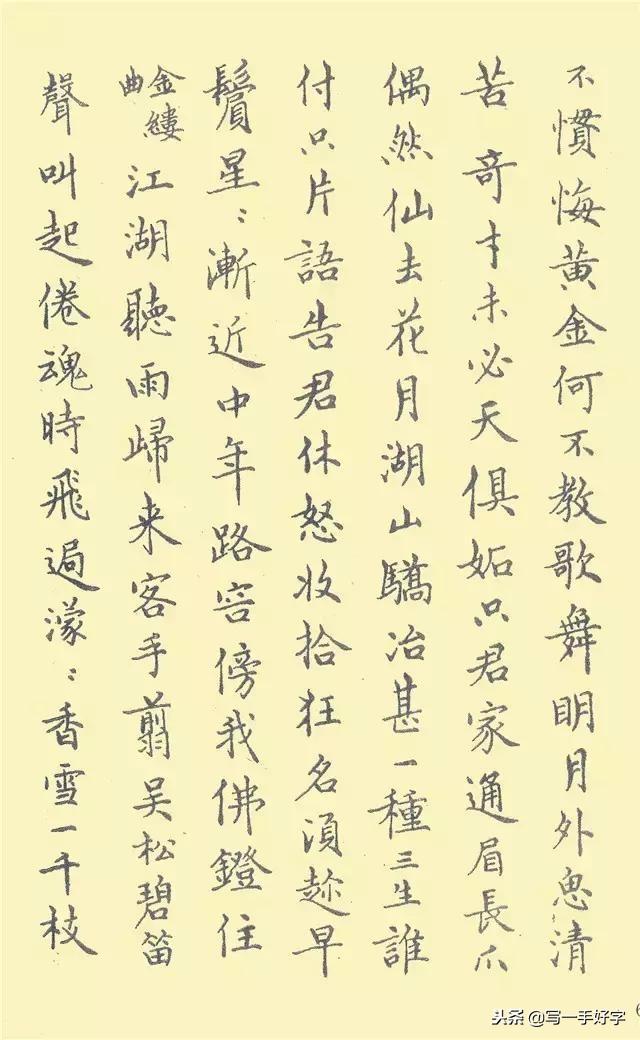 不慣悔黄金何不教歌舞明月外思清
苦奇才未必天俱妬只君家通眉長爪
偶然仙去花月湖山驕冶甚一種三生誰
付只片語告君休怒收拾狂名須趂早
鬢星〻漸近中年路容傍我佛鐙住
金縷曲
江湖聽雨歸来客手翦吴松碧笛
聲叫起倦魂時飛過濛〻香雪一千枝
6
头条@写一手好字